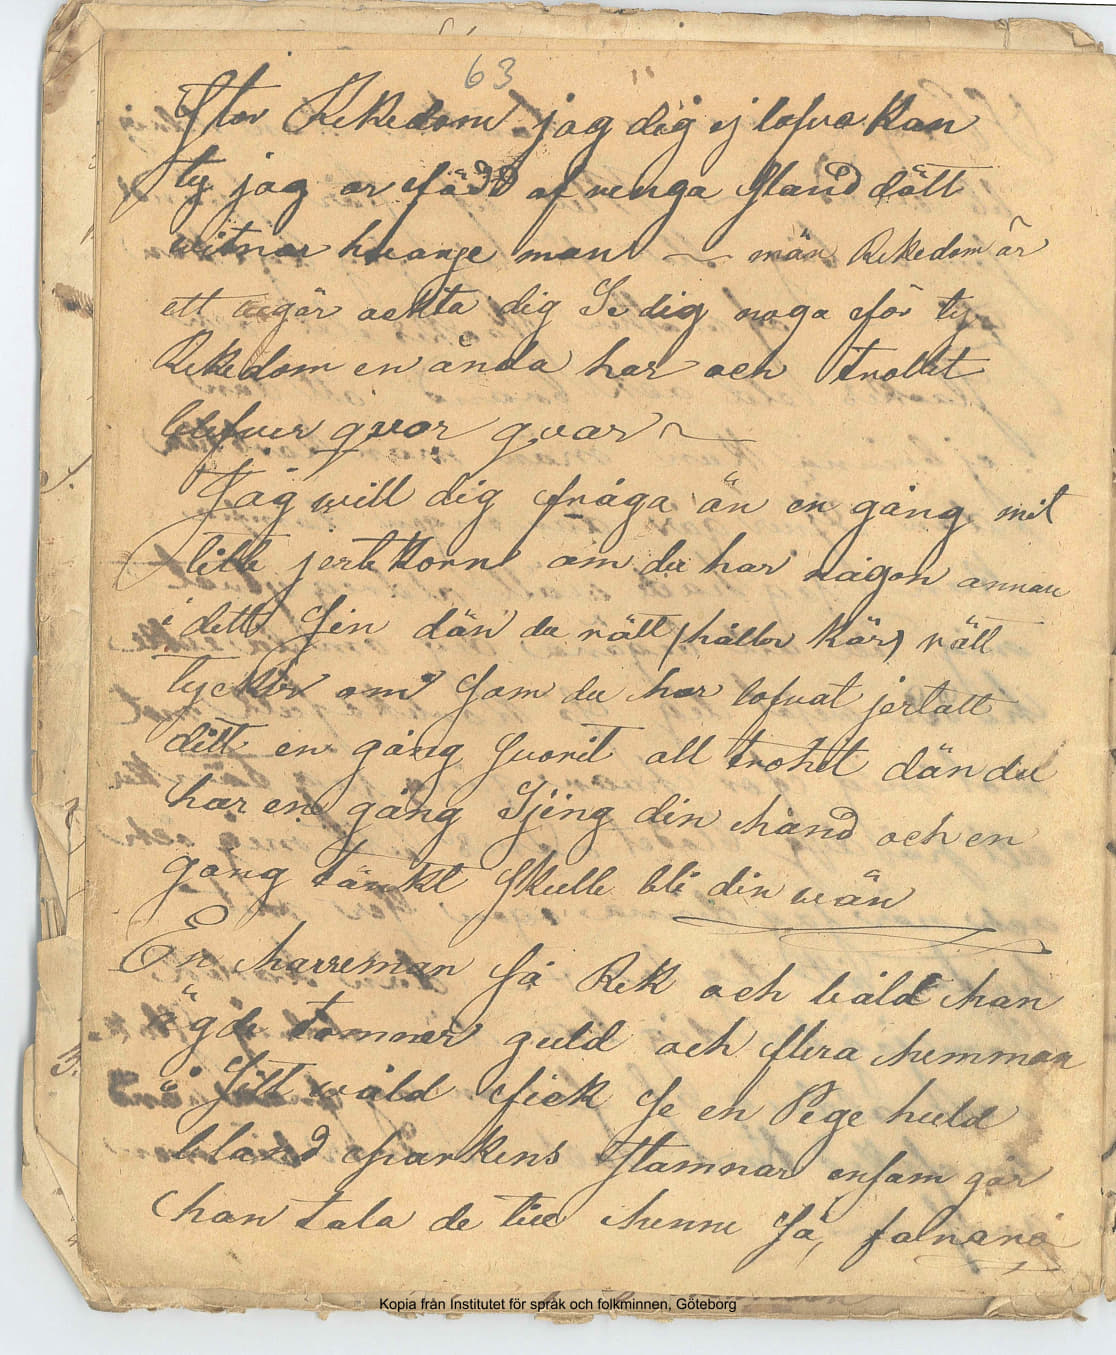 63
Stor Rikedom jag dig ej lofva kan
ty jag ar född af renga Stand dött
witnar hwarje man ~ män Rikedom är
ett augör ackta dig Se dig noga för ty
Rikedom en ända har och trollet
blifver qvor qvar ~
Jag will dig fråga än en gång mit
lille jertekorn om du har någon annan
i dett Sin dän du rätt (håller kär) rätt
tycker om Som du har lofvat jertatt
ditt en gång Svorit all trohet dän du
har en gång Sjing din hånd och en
gang tänkt Skulle bli din wän
En harreman Så Rik och båld han
ägde tomner guld och flera hemman
i Sitt wåld fick Se en Pege huld
bland parkens Stamnar ensam går
han tala de till henne Så, falnana
Kopia från Institutet för språk och folkminnen, Göteborg